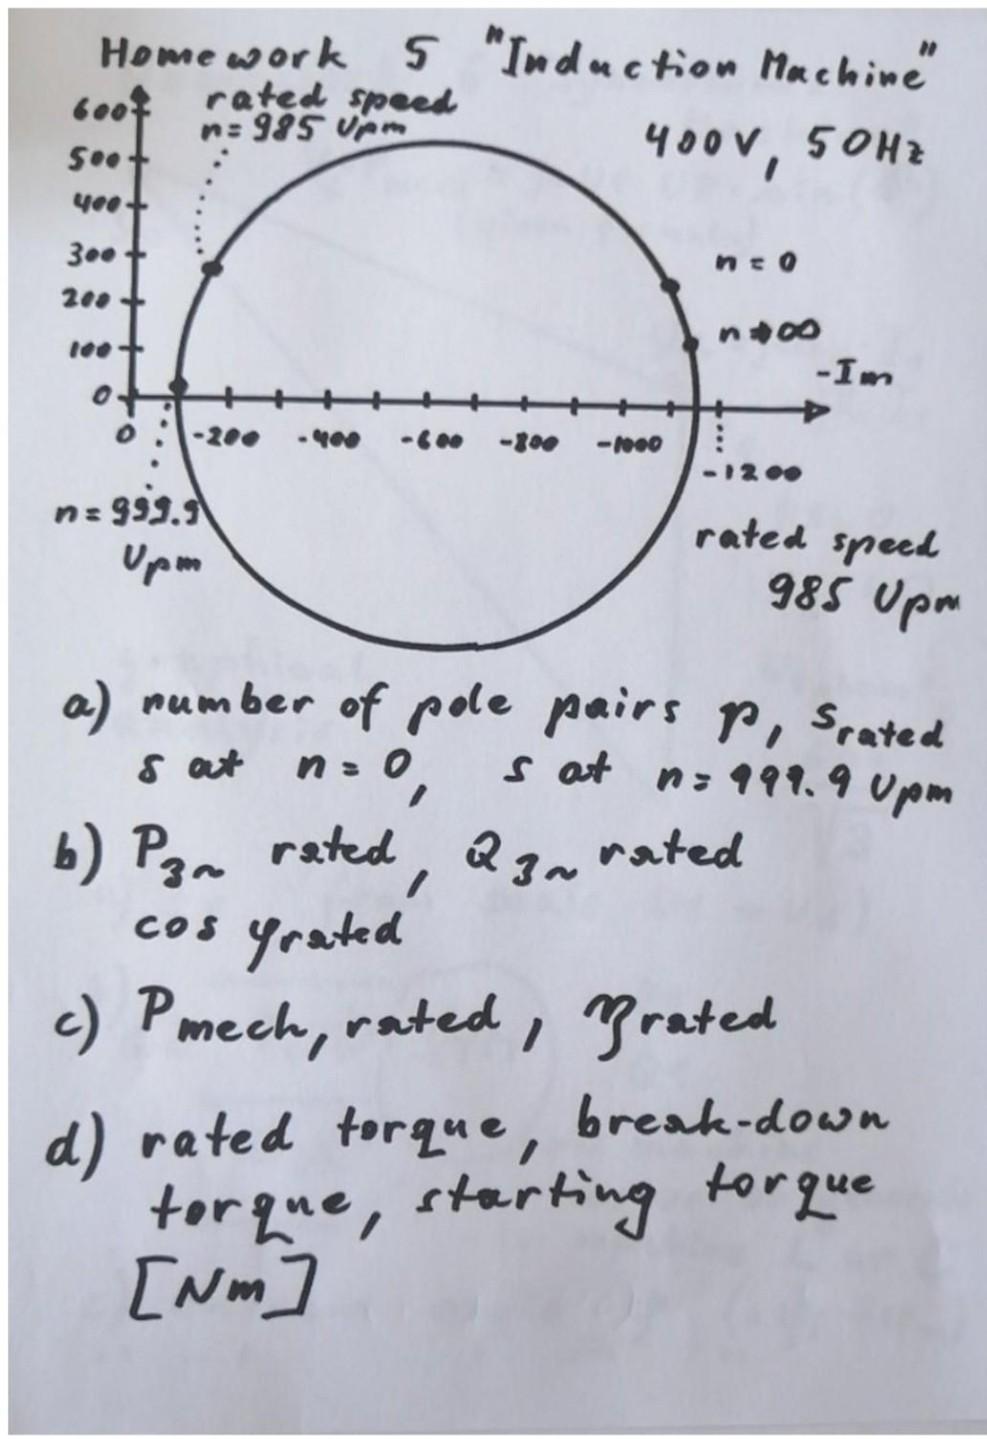 Homework 5 "Induction Machine"
600
rated speed
n = 985 Upm
400V, 50Hz
500
400
300
n = 0
200
n → ∞
100
-Im
0
0 -200 -400 -600 -800 -1000
-1200
n = 999.9
Upm
rated speed
985 Upm
a) number of pole pairs p, s rated
s at n = 0, s at n = 999.9 Upm
b) P3~ rated, Q3~ rated
cos φrated
c) Pmech, rated, ηrated
d) rated torque, break-down
torque, starting torque
[Nm]